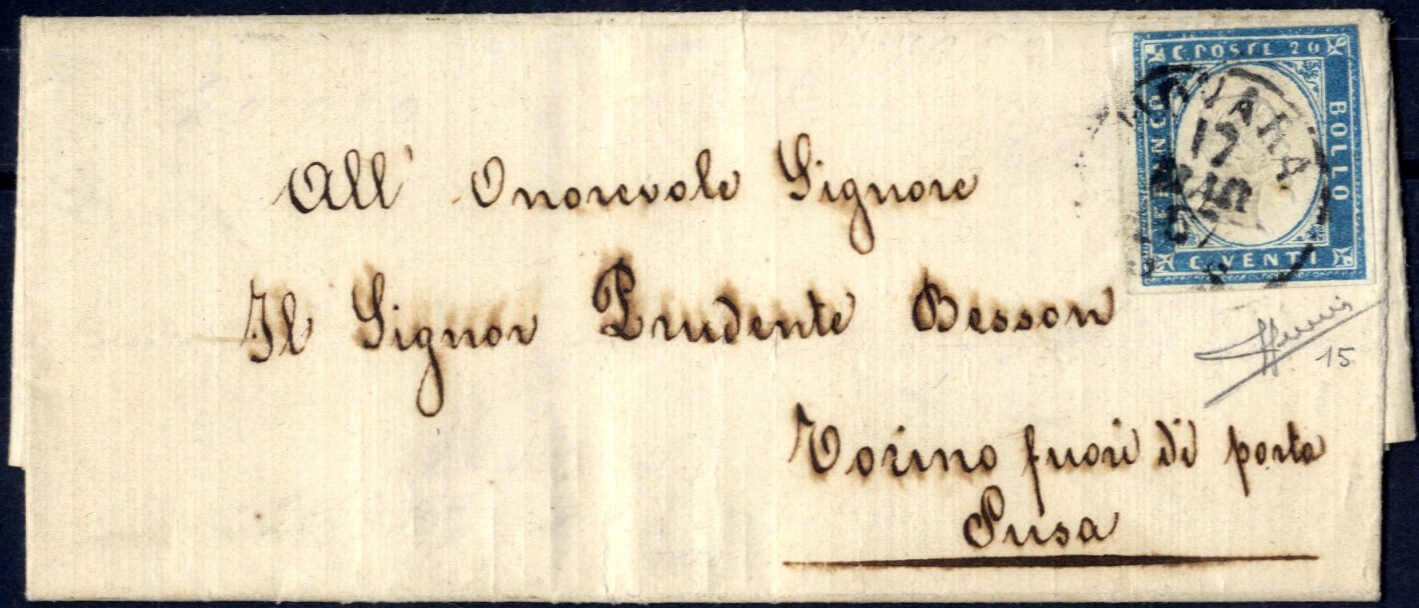 C POSTE 20
FRANCO
BOLLO
C VENTI
17
MAR
All' Onorevole Signore
Il Signor Prudente Besson
Torino fuori di porta
Susa
15